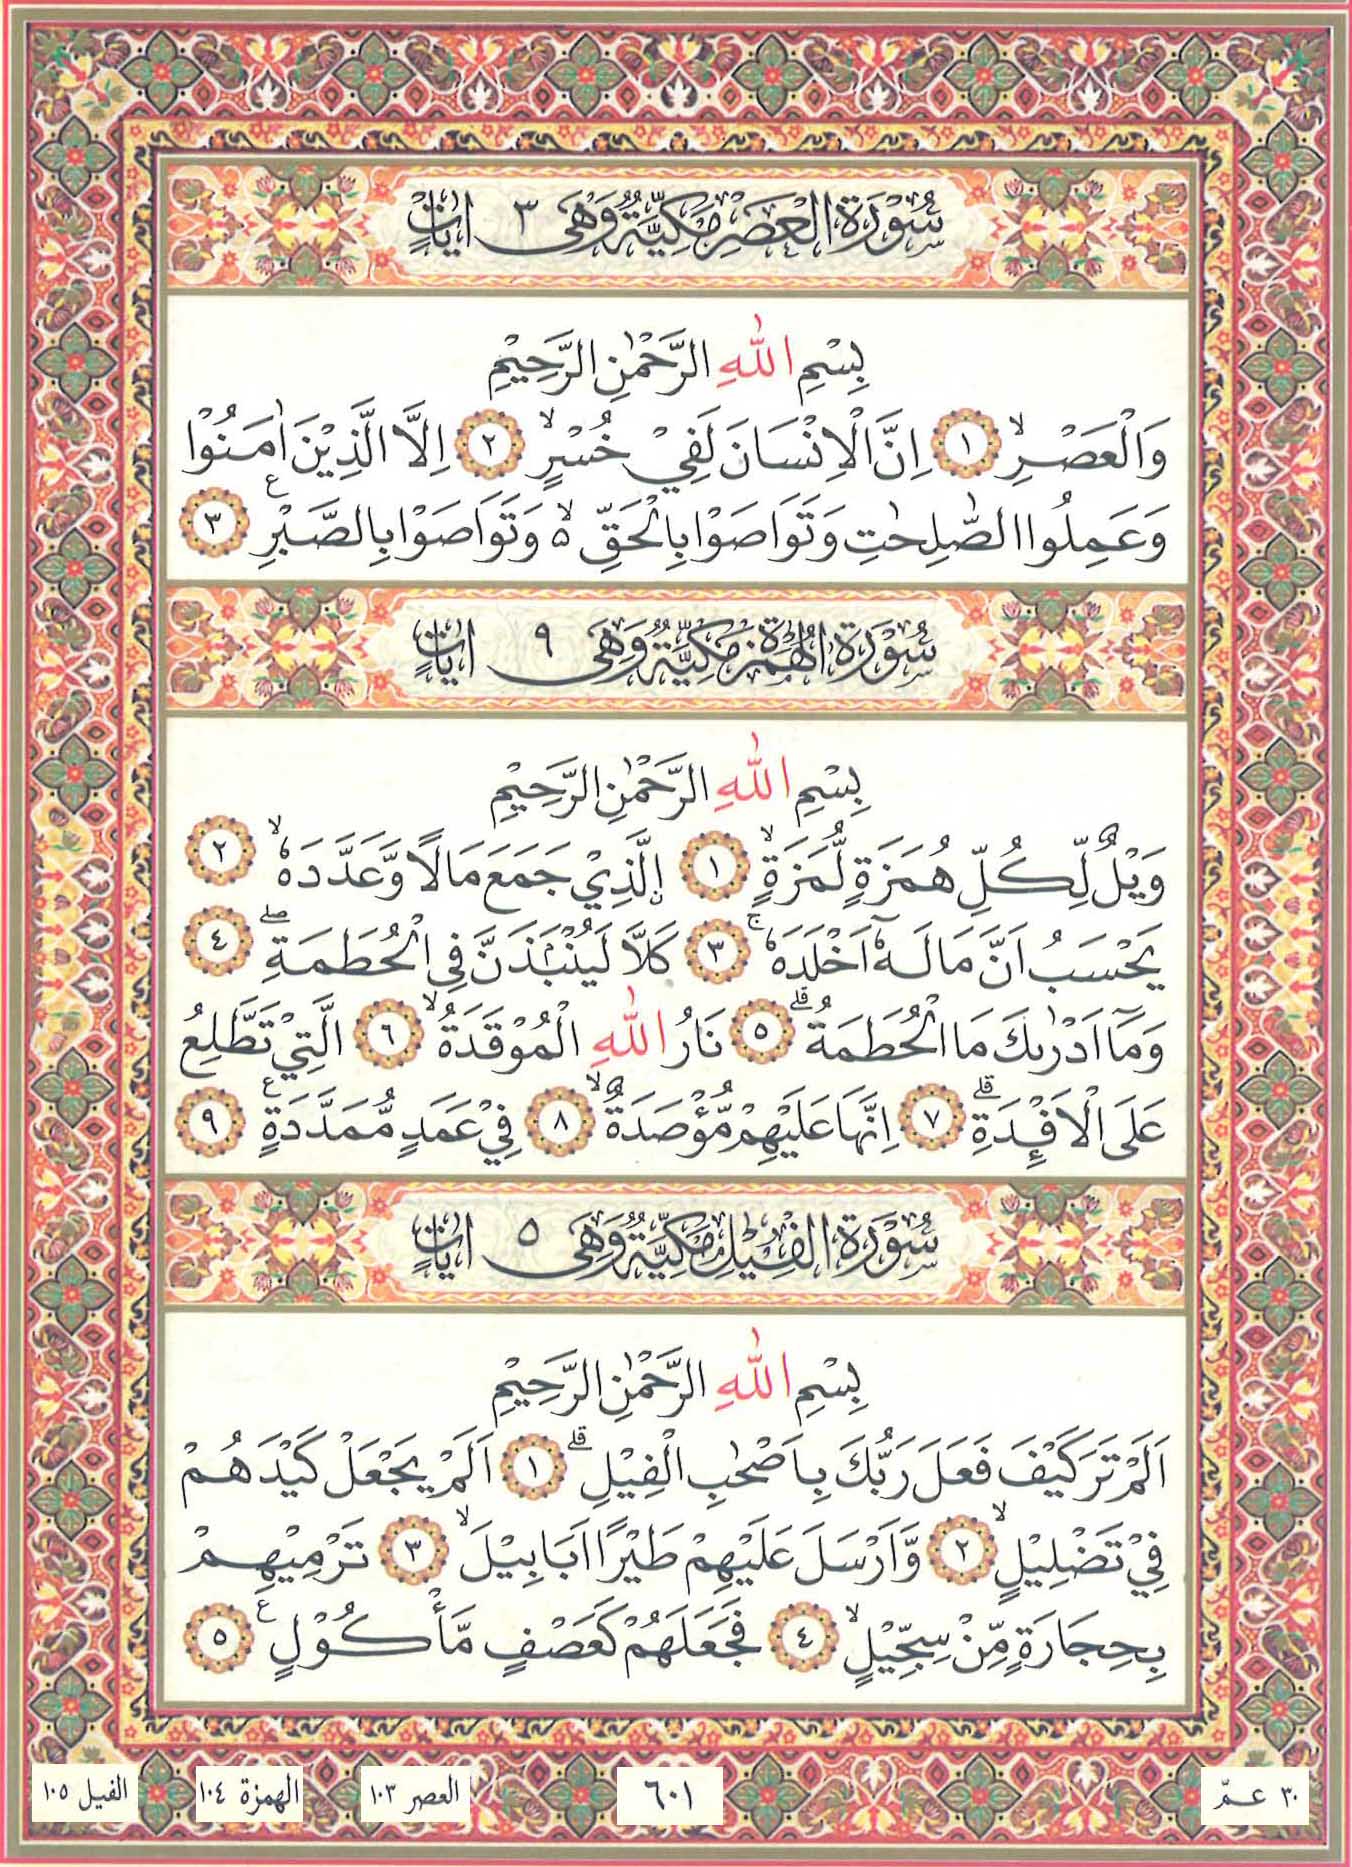 سُوْرَةُ الْعَصْرِ مَكِّيَّةٌ وَهِيَ ٣ اٰيَاتٍ
بِسْمِ اللّٰهِ الرَّحْمٰنِ الرَّحِيْمِ
وَالْعَصْرِۙ ١ اِنَّ الْاِنْسَانَ لَفِيْ خُسْرٍۙ ٢ اِلَّا الَّذِيْنَ اٰمَنُوْا
وَعَمِلُوا الصّٰلِحٰتِ وَتَوَاصَوْا بِالْحَقِّ ەۙ وَتَوَاصَوْا بِالصَّبْرِ ࣖ ٣
سُوْرَةُ الْهُمَزَةِ مَكِّيَّةٌ وَهِيَ ٩ اٰيَاتٍ
بِسْمِ اللّٰهِ الرَّحْمٰنِ الرَّحِيْمِ
وَيْلٌ لِّكُلِّ هُمَزَةٍ لُّمَزَةٍۙ ١ ۨالَّذِيْ جَمَعَ مَالًا وَّعَدَّدَهٗۙ ٢
يَحْسَبُ اَنَّ مَالَهٗٓ اَخْلَدَهٗۚ ٣ كَلَّا لَيُنْۢبَذَنَّ فِى الْحُطَمَةِۖ ٤
وَمَآ اَدْرٰىكَ مَا الْحُطَمَةُۗ ٥ نَارُ اللّٰهِ الْمُوْقَدَةُۙ ٦ الَّتِيْ تَطَّلِعُ
عَلَى الْاَفْـِٕدَةِۗ ٧ اِنَّهَا عَلَيْهِمْ مُّؤْصَدَةٌۙ ٨ فِيْ عَمَدٍ مُّمَدَّدَةٍ ࣖ ٩
سُوْرَةُ الْفِيْلِ مَكِّيَّةٌ وَهِيَ ٥ اٰيَاتٍ
بِسْمِ اللّٰهِ الرَّحْمٰنِ الرَّحِيْمِ
اَلَمْ تَرَ كَيْفَ فَعَلَ رَبُّكَ بِاَصْحٰبِ الْفِيْلِۗ ١ اَلَمْ يَجْعَلْ كَيْدَهُمْ
فِيْ تَضْلِيْلٍۙ ٢ وَّاَرْسَلَ عَلَيْهِمْ طَيْرًا اَبَابِيْلَۙ ٣ تَرْمِيْهِمْ
بِحِجَارَةٍ مِّنْ سِجِّيْلٍۙ ٤ فَجَعَلَهُمْ كَعَصْفٍ مَّأْكُوْلٍ ࣖ ٥
٣٠ عـمّ ٦٠١ العصر ١٠٣ الهمزة ١٠٤ الفيل ١٠٥